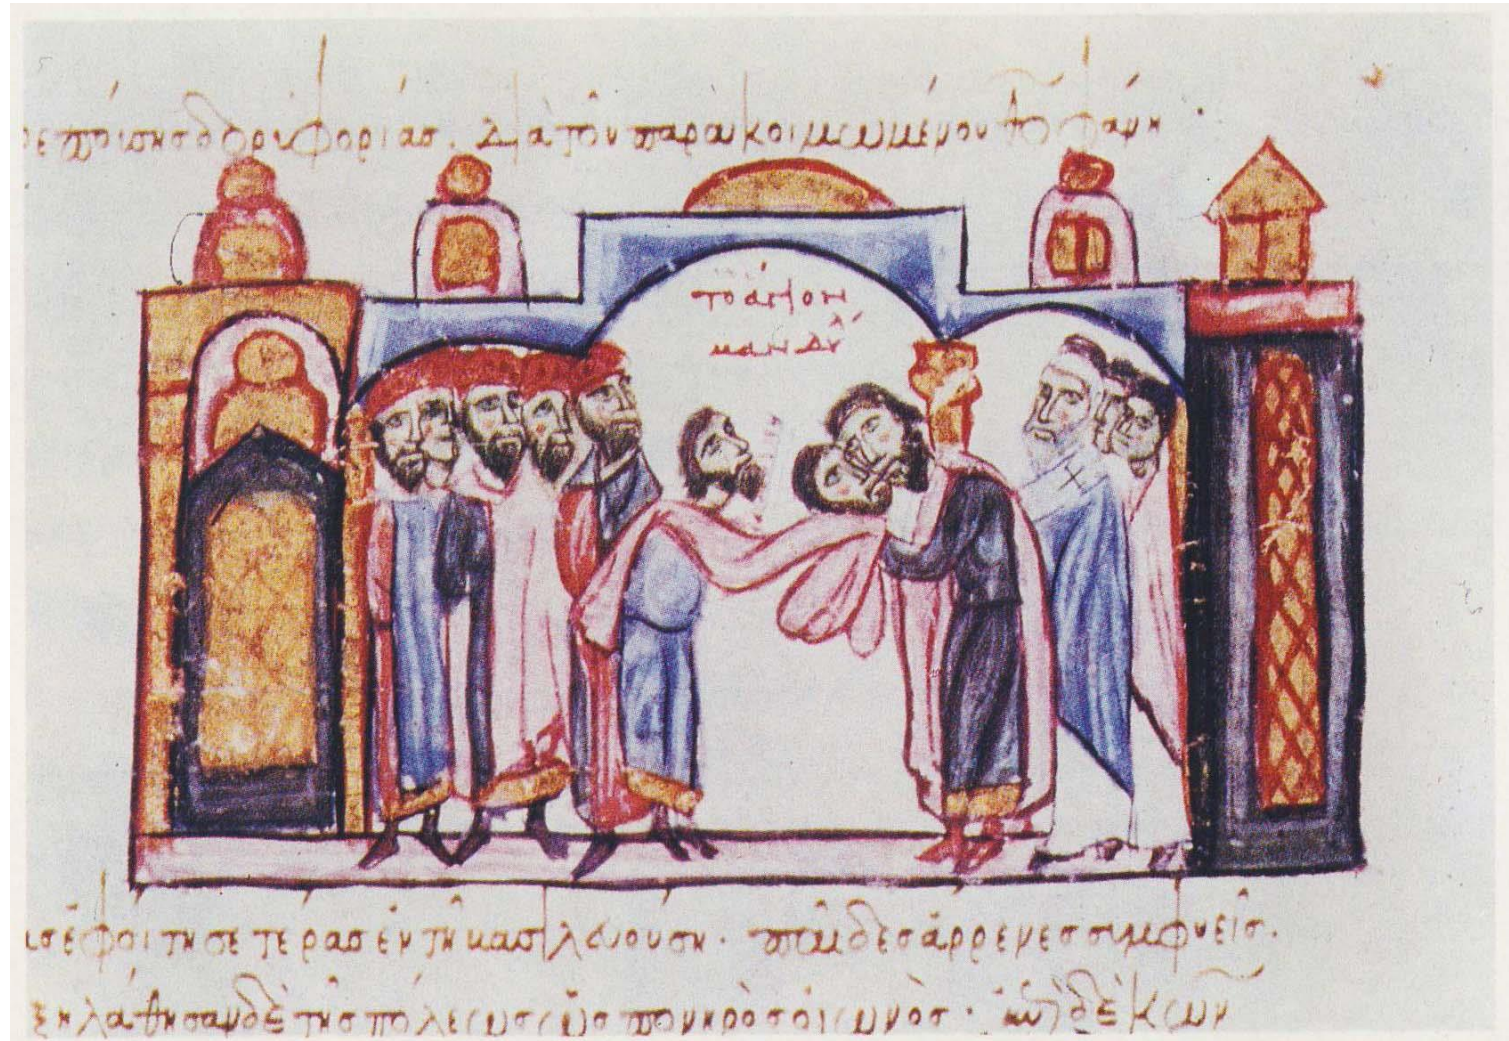 δορυφορίας. διὰ τοῦ παρακοιμωμένου
τὸ ἅγιον
μανδύ
ἐφοίτησε τέρας ἐν τῆ βασιλευούση. παῖδες ἄρρενες συμφυεῖς.
ξηλάθησαν δὲ τῆς πόλεως ὡς πονηρὸς οἰωνός. δὲ κων